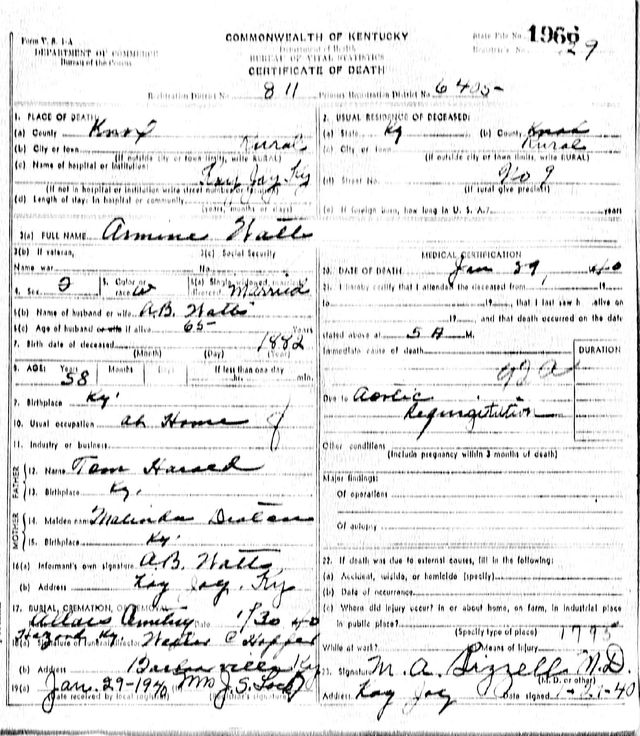 Form V. S. 1-A
DEPARTMENT OF COMMERCE
Bureau of the Census
COMMONWEALTH OF KENTUCKY
Department of Health
BUREAU OF VITAL STATISTICS
CERTIFICATE OF DEATH
State File No. 1966
Registrar's No. 29
Registration District No. 811
Primary Registration District No. 6405
1. PLACE OF DEATH:
(a) County Knox
(b) City or town Rural
(If outside city or town limits, write RURAL)
(c) Name of hospital or institution:
Kay Jay Ky
(If not in hospital or institution write street number or location)
(d) Length of stay: In hospital or community
(years, months or days)
2. USUAL RESIDENCE OF DECEASED:
(a) State Ky (b) County Knox
(c) City or town Rural
(If outside city or town limits, write RURAL)
(d) Street No. No 9
(If rural give precinct)
(e) If foreign born, how long in U. S. A.? years
3(a) FULL NAME Armine Watts
3(b) If veteran, 3(c) Social Security
Name war No.
4. Sex 5. Color or race W 6(a) Single, widowed, married, Married
6(b) Name of husband or wife A.B. Watts
6(c) Age of husband or wife if alive 65 Years
7. Birth date of deceased 1882
(Month) (Day) (Year)
8. AGE: Years Months Days If less than one day
58 hr. min.
9. Birthplace Ky.
10. Usual occupation at Home
11. Industry or business
FATHER
12. Name Tom
13. Birthplace Ky.
MOTHER
14. Maiden name Malinda
15. Birthplace Ky.
16(a) Informant's own signature A.B. Watts
(b) Address Kay Jay, Ky
17. BURIAL, CREMATION, OR REMOVAL
Date 1/30 40
Hazard Ky.
18(a) Signature of funeral director Wester C Hopper
(b) Address Barbourville Ky
19(a) Jan. 29-1940 Mrs J.S. Lock
(Date received by local registrar) (Registrar's signature)
MEDICAL CERTIFICATION
20. DATE OF DEATH Jan 29, 40
21. I hereby certify that I attended the deceased from 19
to 19 , that I last saw h alive on
19 , and that death occurred on the date
stated above at 5 A M.
Immediate cause of death
DURATION
92A
Due to Aortic
Regurgitation
Other conditions
(Include pregnancy within 3 months of death)
Major findings:
Of operations
Of autopsy
22. If death was due to external causes, fill in the following:
(a) Accident, suicide, or homicide (specify)
(b) Date of occurrence
(c) Where did injury occur? in or about home, on farm, in industrial place
in public place?
(Specify type of place) 1795
While at work? Means of Injury
23. Signature M. A. Bizzell M.D.
(M. D. or other)
Address Kay Jay Date signed 1-31-40